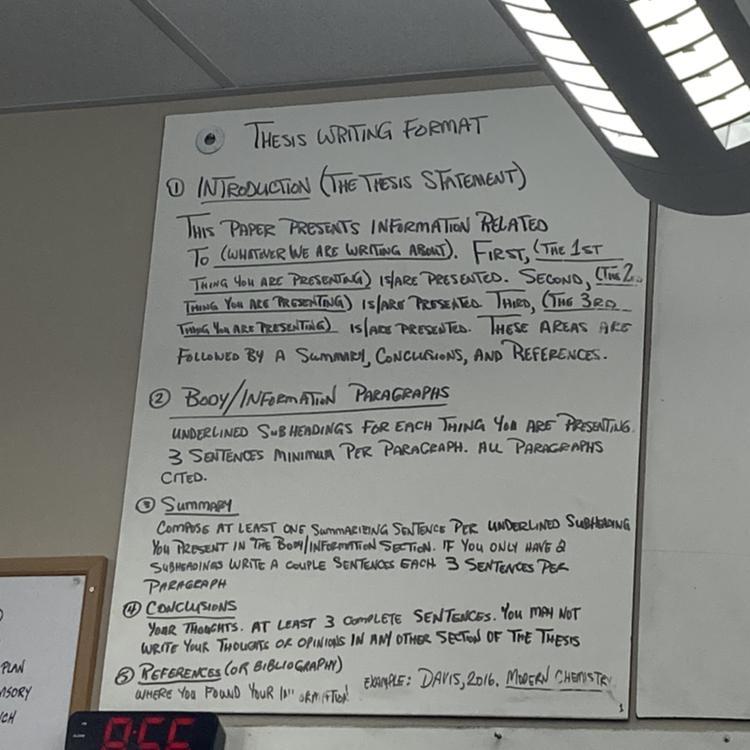 THESIS WRITING FORMAT
① INTRODUCTION (THE THESIS STATEMENT)
THIS PAPER PRESENTS INFORMATION RELATED
TO (WHATEVER WE ARE WRITING ABOUT). FIRST, (THE 1ST
THING YOU ARE PRESENTING) IS/ARE PRESENTED. SECOND, (THE 2
THING YOU ARE PRESENTING) IS/ARE PRESENTED. THIRD, (THE 3RD
THING YOU ARE PRESENTING) IS/ARE PRESENTED. THESE AREAS ARE
FOLLOWED BY A SUMMARY, CONCLUSIONS, AND REFERENCES.
② BODY/INFORMATION PARAGRAPHS
UNDERLINED SUBHEADINGS FOR EACH THING YOU ARE PRESENTING.
3 SENTENCES MINIMUM PER PARAGRAPH. ALL PARAGRAPHS
CITED.
③ SUMMARY
COMPOSE AT LEAST ONE SUMMARIZING SENTENCE PER UNDERLINED SUBHEADING
YOU PRESENT IN THE BODY/INFORMATION SECTION. IF YOU ONLY HAVE 2
SUBHEADINGS WRITE A COUPLE SENTENCES EACH 3 SENTENCES PER
PARAGRAPH
④ CONCLUSIONS
YOUR THOUGHTS. AT LEAST 3 COMPLETE SENTENCES. YOU MAY NOT
WRITE YOUR THOUGHTS OR OPINIONS IN ANY OTHER SECTION OF THE THESIS
⑤ REFERENCES (OR BIBLIOGRAPHY)
WHERE YOU FOUND YOUR EXAMPLE: DAVIS, 2016. MODERN CHEMISTRY
PLAN